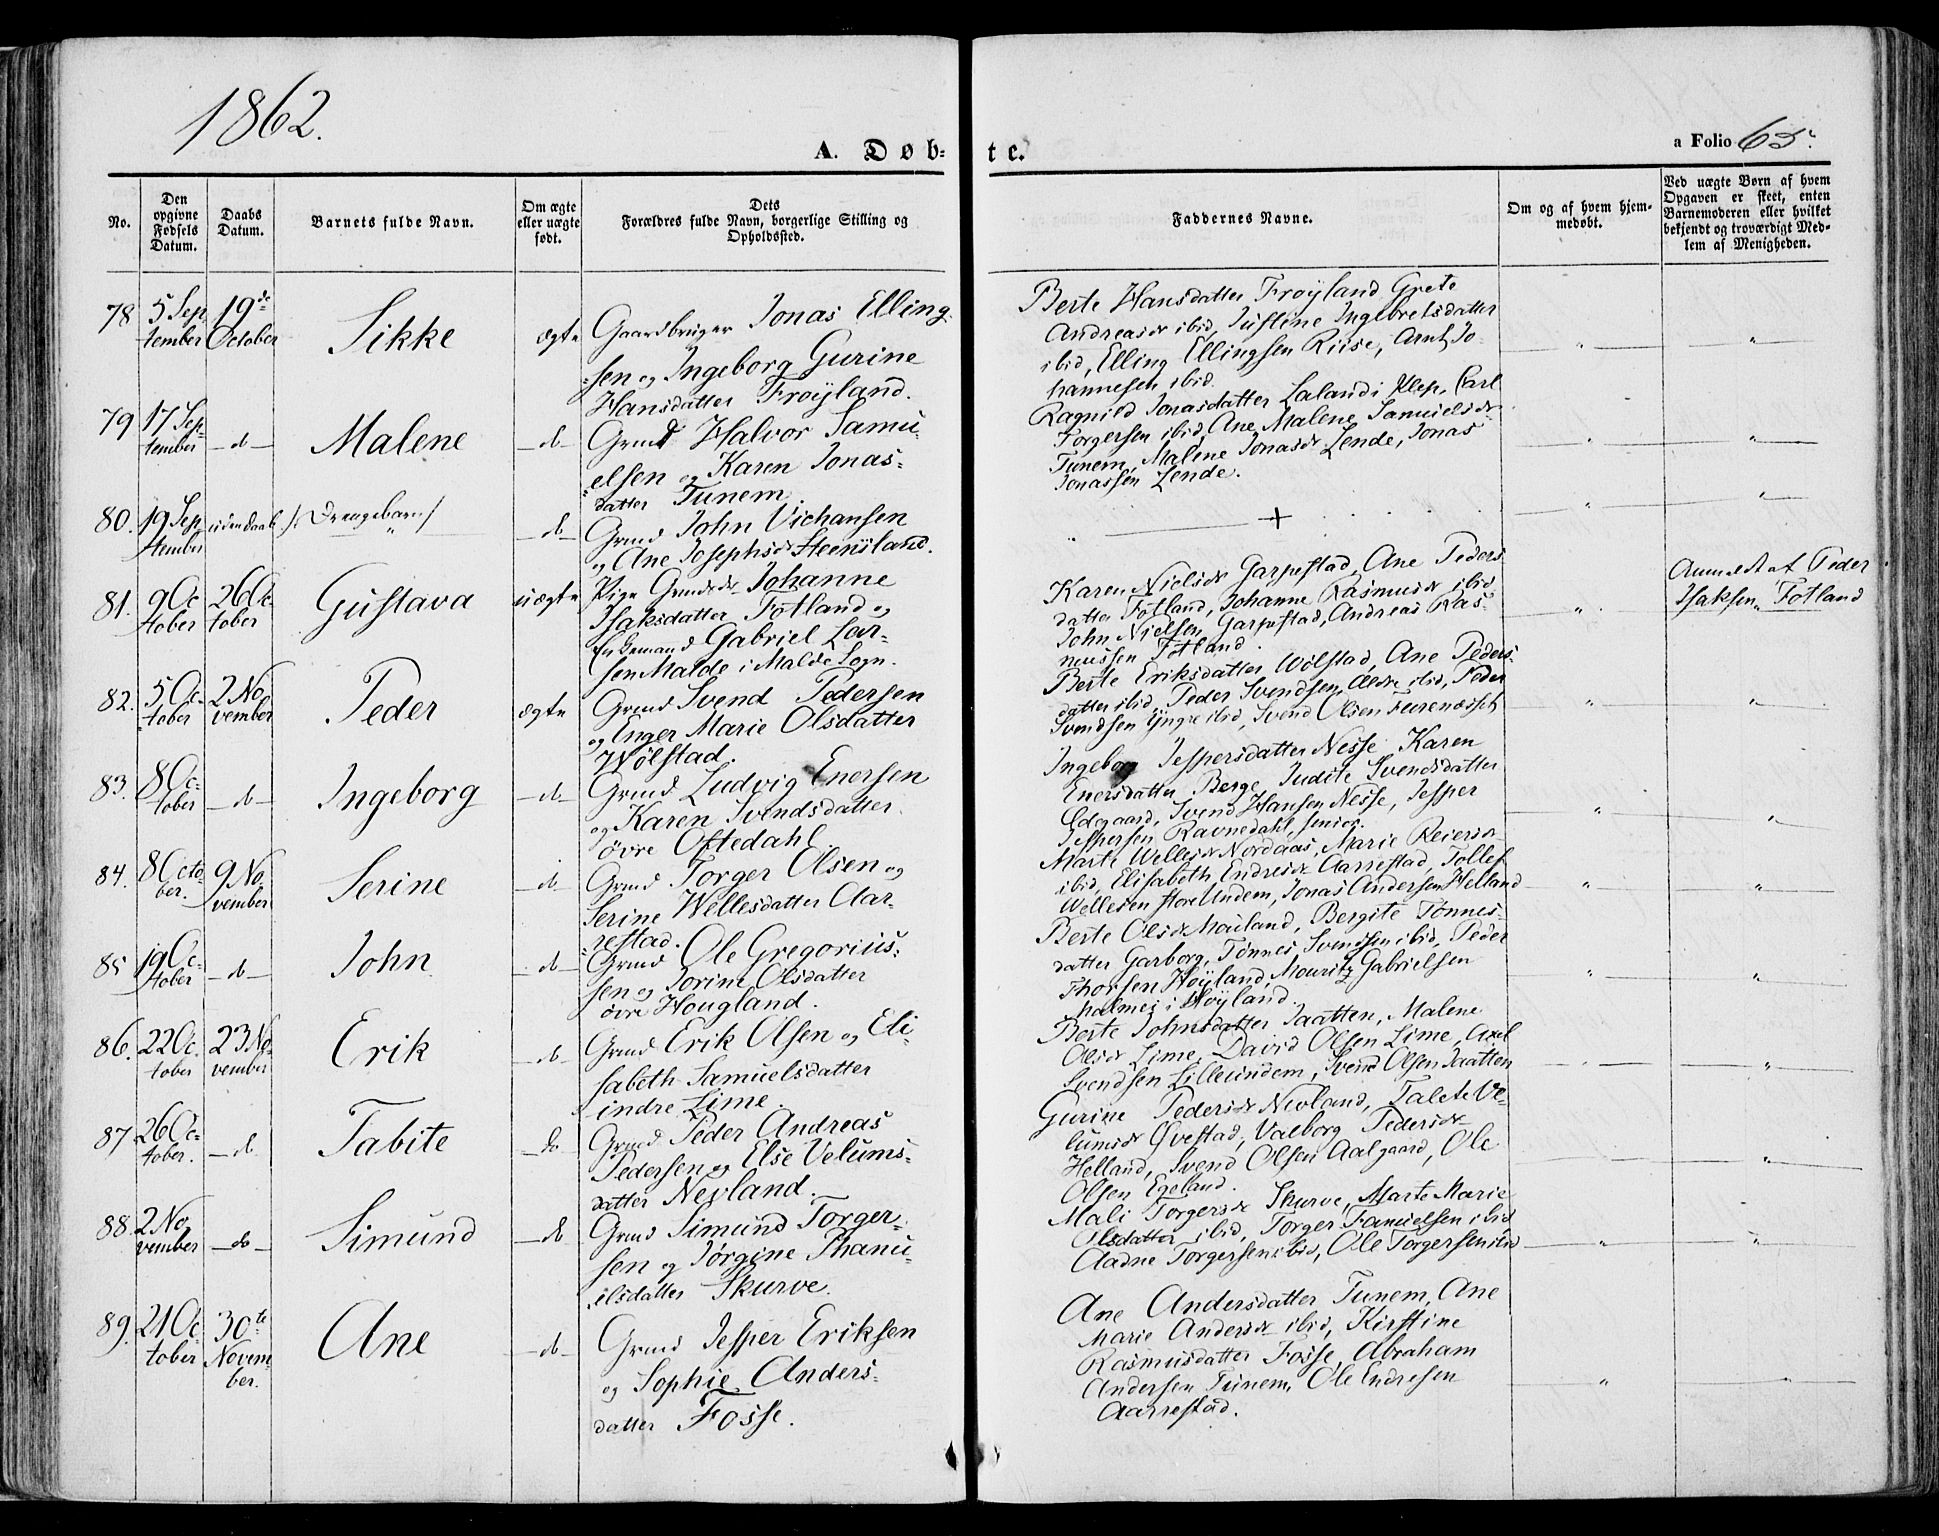 1862.
A. Døb-
te.
a Folio 65.
No.
Den opgivne Fødsels Datum.
Daabs Datum.
Barnets fulde Navn.
Om ægte eller uægte født.
Dets Forældres fulde Navn, borgerlige Stilling og Opholdssted.
Faddernes Navne.
Om og af hvem hjemmedøbt.
Ved uægte Børn af hvem Opgaven er skeet, enten Barnemoderen eller hvilket bekjendt og troværdigt Medlem af Menigheden.
78 5 September 19de October Sikke ægte
Gaardbruger Jonas Elling-
sen og Ingeborg Gurine
Hansdatter Frøyland.
Berte Hansdatter Frøyland Grete
Andreasdr ibid, Justine Ingebretsdatter
ibid, Elling Ellingsen Riise, Arnt Jo-
hannesen ibid.
79 17 September -do- Malene -do-
Grmd Halvor Samu-
elsen og Karen Jonas-
datter Tunem
Ragnild Jonasdatter Laland i Klep, Carl
Torgersen ibid, Ane Malene Samuelsdr
Tunem, Malene Jonasdr Lende, Jonas
Jonassen Lende.
80. 19 September uden daab /: Drengebarn / -do-
Grmd John Vichansen
og Ane Josephsdr Steensland.
81. 9 October 26 October Gustava uægte
Pige Grmdsdr Johanne
Isaksdatter Fotland og
Enkemand Gabriel Lar-
sen Malde i Malde Sogn.
Karen Nielsdr Garpestad, Ane Peders
datter Fotland, Johanne Rasmusdr ibid
John Nielsen Garpestad, Andreas Ras-
mussen Fotland.
Anmeldt af Peder
Isaksen Fotland
82. 5 October 2 November Peder ægte
Grmd Svend Pedersen
og Inger Marie Olsdatter
Wølstad.
Berte Eriksdatter Wølstad, Ane Peders-
datter ibid, Peder Svendsen Ældre ibid, Peder
Svendsen Yngre ibid, Svend Olsen
83. 8 October -do- Ingeborg -do-
Grmd Ludvig Enersen
og Karen Svendsdatter
øvre Oftedahl
Ingeborg Jespersdatter Nesse Karen
Enersdatter Berge Judite Svendsdatter
Ødegaard, Svend Hansen Nesse, Jesper
Jespersen Ravnedahl, senior.
84. 8 October. 9 November Serine -do-
Grmd Torger Olsen og
Serine Wellesdatter Aar-
restad.
Marte Wellesdr Nordaas, Marie Reiersdr
ibid, Elisabeth Endresdr Aarrestad, Tollef
Wellesen store Undem, Jonas Andersen Helland
85 19 October -do- John -do-
Grmd Ole Gregorius-
sen og Jorine Olsdatter
øvre Hougland.
Berte Olsdr Mauland, Bergite Tønnes-
datter Garborg, Tønnes Svendsen ibid, Peder
Thorsen Høyland, Mouritz Gabrielsen
Malmei i Høyland.
86. 22 October 23 November Erik -do-
Grmd Erik Olsen og Eli-
sabeth Samuelsdatter
indre Lime.
Berte Johnsdatter Jaatten, Malene
Olsdr Lime, David Olsen Lime, Axel
Svendsen Lilleundem, Svend Olsen Jaatten
87 26 October. -do Tabite -do-
Grmd Peder Andreas
Pedersen og Else Velums-
datter Nevland.
Gurine Pedersdr Nevland, Talete Ve-
lumsdr Qvestad, Valborg Pedersdr
Helland, Svend Olsen Aalgaard, Ole
Olsen Egeland.
88. 2 November -do- Simund -do
Grmd Simund Torger-
sen og Jørgine Thanu-
elsdatter Skurve.
Mali Torgersdr Skurve, Marte Marie
Olsdatter ibid, Torger Samuelsen ibid
Aadne Torgersen ibid, Ole Torgersen ibid
89. 21 October 30te November. Ane -do-
Grmd Jesper Eriksen
og Sophie Anders-
datter Fosse.
Ane Andersdatter Tunem, Ane
Marie Andersdr ibid, Kirstine
Rasmusdatter Fosse, Abraham
Andersen Tunem, Ole Endresen
Aarrestad.